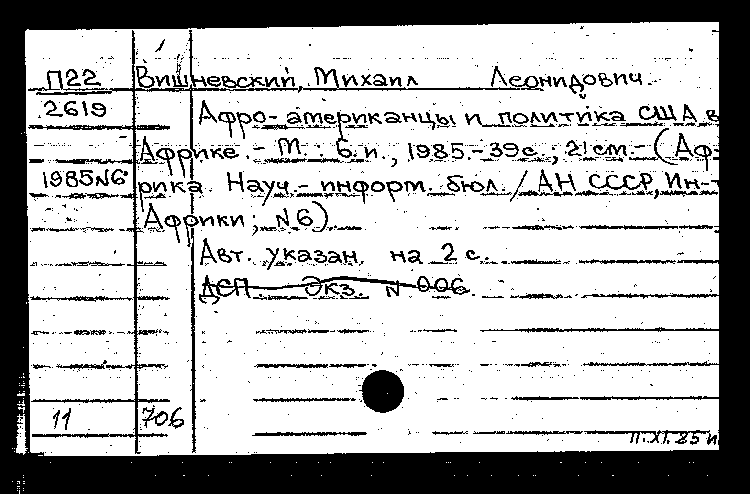 1
П22 Вишневский, Михаил Леонидович.
2619 Афро-американцы и политика США в
Африке. - М. : Б.и., 1985.-39с.; 21см.-(Аф-
1985N6 рика. Науч.- информ. бюл. / АН СССР, Ин-т
Африки; N6)
Авт. указан на 2 с.
ДСП. Экз. N 006.
11 706
11.XI.85 и